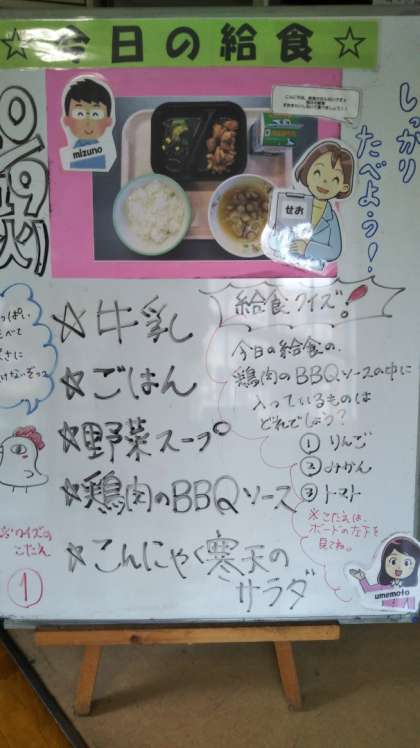 ☆今日の給食☆
しっかり
たべよう!
mizuno
せお
19
(火)
☆牛乳
☆ごはん
☆野菜スープ
☆鶏肉のBBQソース
☆こんにゃく寒天の
サラダ
給食クイズ!
今日の給食の、
鶏肉のBBQソースの中に
入っているものは
どれでしょう?
① りんご
② みかん
③ トマト
※こたえは、
ボードの左下を
見てね。
umemoto
クイズの
こたえ
①